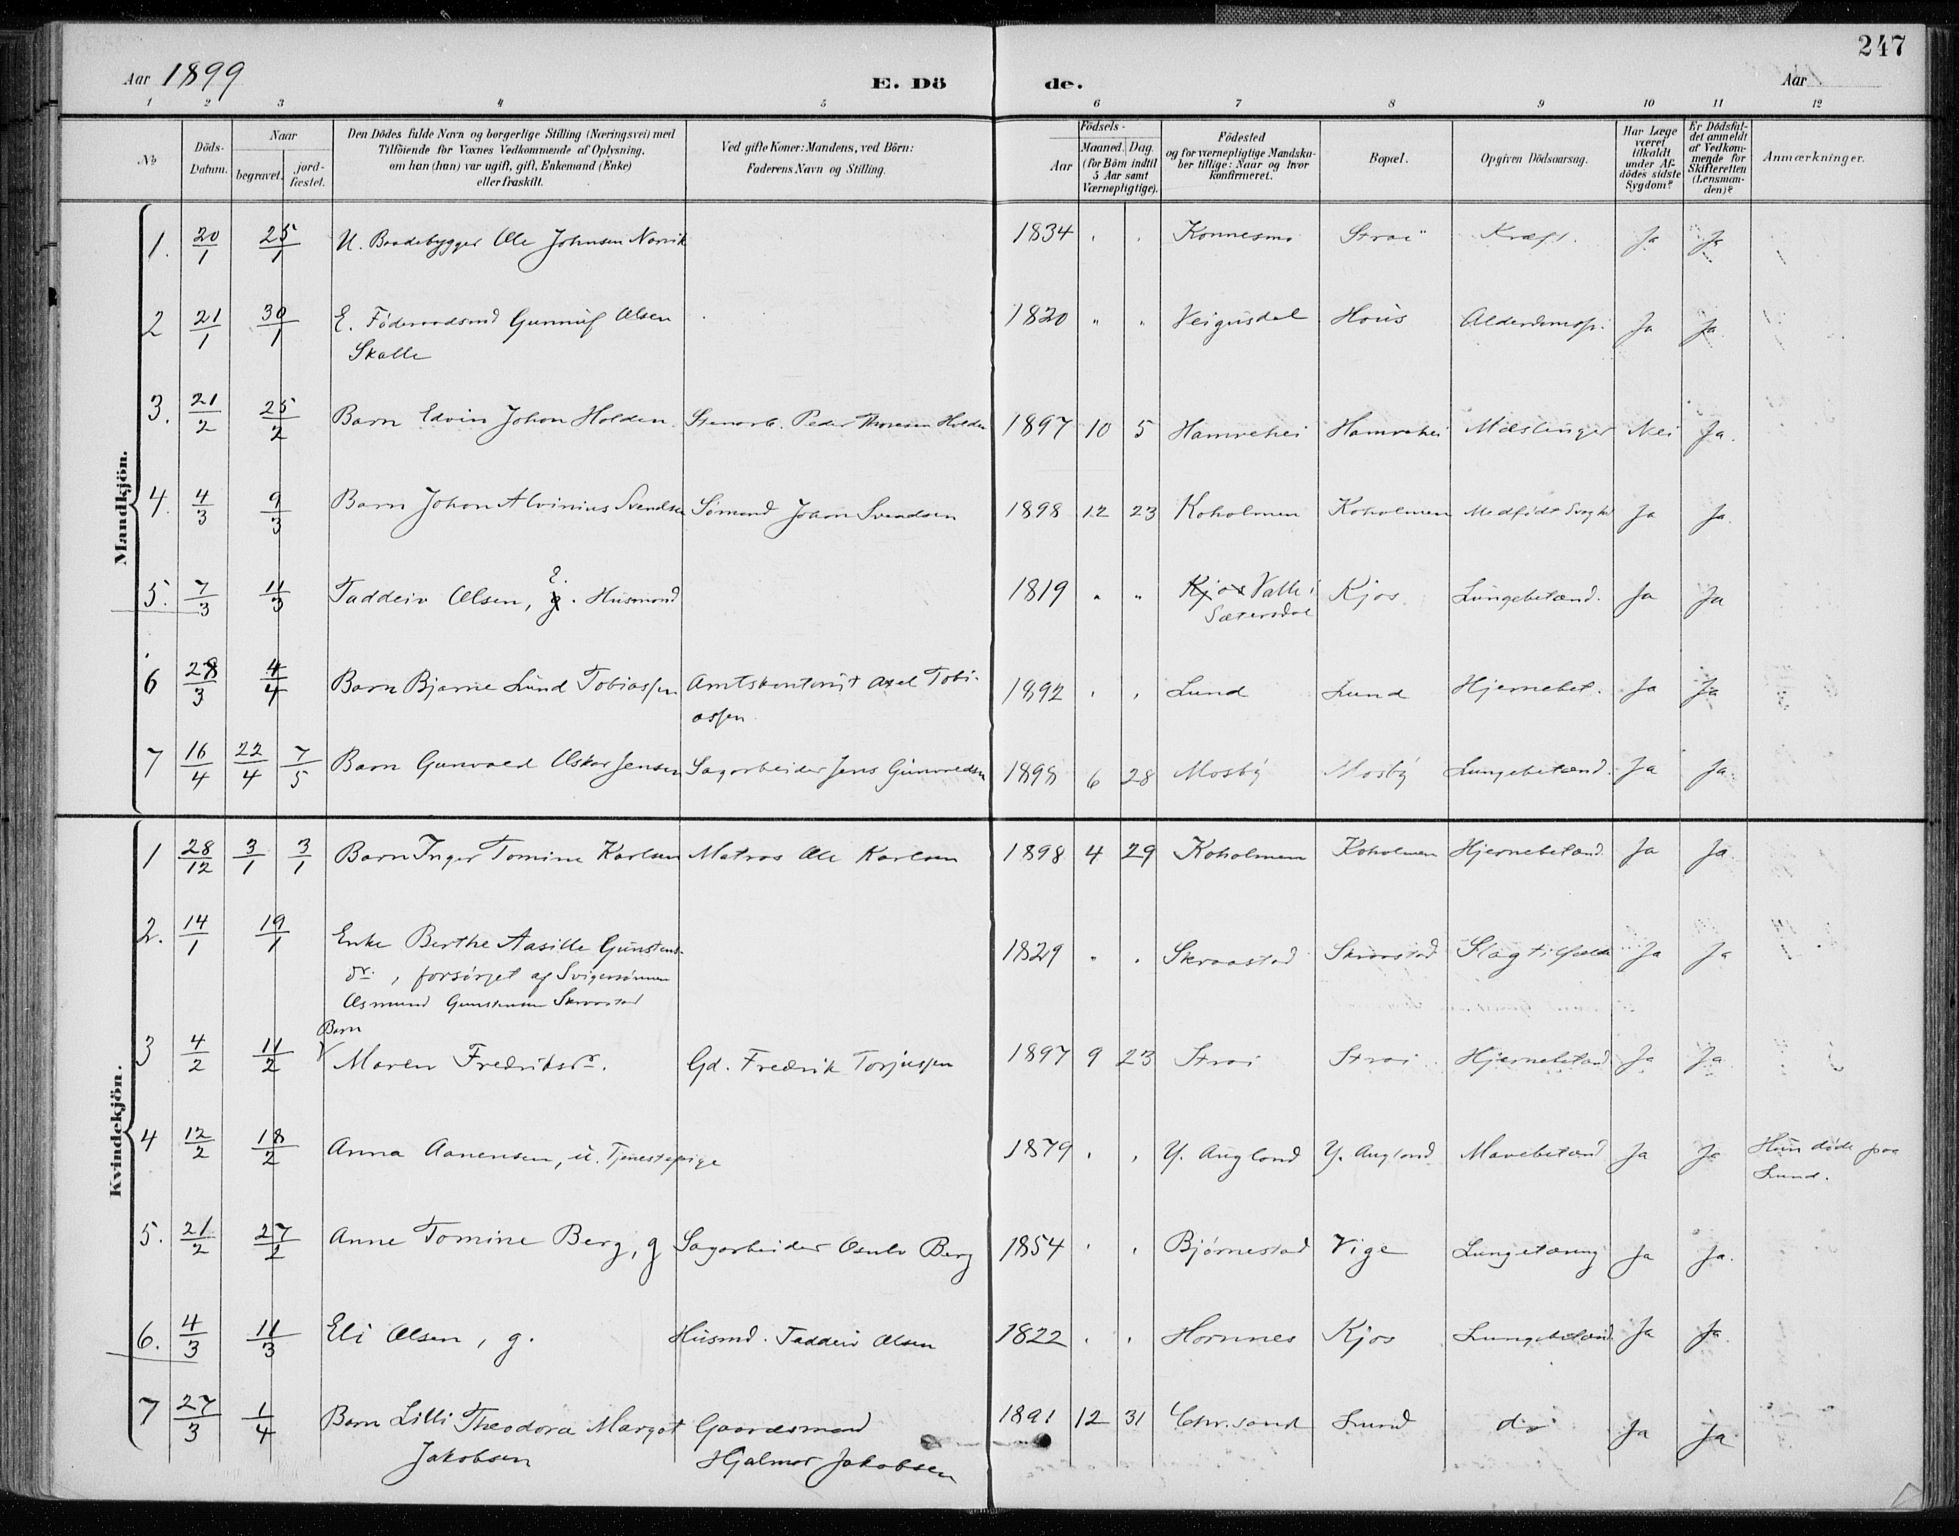 247
Aar 1899 E. Dö de. Aar
1 2 3 4 5 6 7 8 9 10 11 12
No Döds-Datum. Naar begravet. jord-fæstet. Den Dödes fulde Navn og borgerlige Stilling (Næringsvei) med Tilföiende for Voxnes Vedkommende af Oplysning, om han (hun) var ugift, gift, Enkemand (Enke) eller fraskilt. Ved gifte Koner: Mandens, ved Börn: Faderens Navn og Stilling. Födsels- Aar Maaned. Dag. (for Börn indtil 5 Aar samt Værnepligtige). Födested og for værnepligtige Mandska-ber tillige: Naar og hvor konfirmeret. Bopæl. Opgiven Dödsaarsag. Har Læge været tilkaldt under Af-dödes sidste Sygdom? Er Dödsfal-det anmeldt af Vedkom-mende for Skifteretten (Lensman-den)? Anmærkninger.
Mandkjön.
1. 20/1 25/1 U. Baadebygger Ole Johnsen Narvik 1834 " " Konnesmo Strai Kræft. Ja Ja
2 21/1 30/1 E. Föderaadsmd Gunnuf Olsen 1820 " " Veigusdal Høie Alderdomssv. Ja Ja
Skalle
3. 21/2 25/2 Barn Edvin Johan Holden Stenarb. Peder Thorsen Holden 1897 10 5 Hamrehei Hamrehei Mæslinger Nei Ja.
4. 4/3 9/3 Barn Johan Alvinius Svendsen Sömand Johan Svendsen 1898 12 23 Koholmen Koholmen Medfødt Svaghed Ja Ja.
5. 7/3 11/3 Taddeiv Olsen, g. e. Husmand 1819 " " Kjos Valle i Kjos Lungebetænd. Ja Ja
Sætersdal
6 28/3 4/4 Barn Bjarne Lund Tobiassen Amtskontorist Axel Tobi- 1892 " " Lund Lund Hjernebet. Ja Ja
assen
7 16/4 22/4 7/5 Barn Gunvald Oskar Jensen Sagarbeider Jens Gunvaldsen 1898 6 28 Mosby Mosby Lungebetænd. Ja Ja.
Kvindekjön.
1 28/12 3/1 3/1 Barn Inger Tomine Karlsen Matros Ole Karlsen 1898 4 29 Koholmen Koholmen Hjernebetænd. Ja Ja.
2. 14/1 19/1 Enke Berthe Aasille Gunstens- 1829 " " Skraastad Skraastad Slagtilfælde Ja Ja
dr., forsörget af Svigersönnen
Asmund Gunstensen Skraastad
Barn
3 4/2 11/2 Maren Fredriksdr. Gd. Fredrik Torjussen 1897 9 23 Strai Strai Hjernebetænd Ja Ja.
4 12/2 18/2 Anna Aanensen, u. Tjenestepige 1879 " " Y. Augland Y. Augland Mavebetænd Ja Ja Hun døde paa
Lund.
5. 21/2 27/2 Anne Tomine Berg, g Sagarbeider Osulv Berg 1854 " " Bjørnestad Vige Lungetæring Ja Ja.
6. 4/3 11/3 Eli Olsen, g. Husmd. Taddeiv Olsen 1822 " " Hornnes Kjos Lungebetænd Ja Ja.
7 27/3 1/4 Barn Lilli Theodora Margot Gaardsmand 1891 12 31 Chr.sand Lund do Ja Ja
Jakobsen Hjalmar Jakobsen